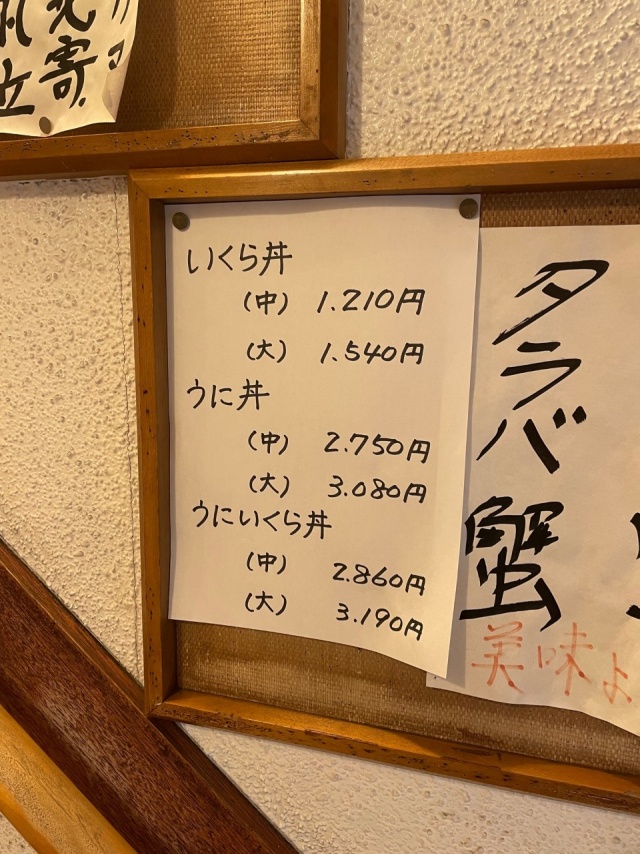 寄
いくら丼
(中) 1.210円
(大) 1.540円
うに丼
(中) 2.750円
(大) 3.080円
うにいくら丼
(中) 2.860円
(大) 3.190円
タラバ蟹
美味よ